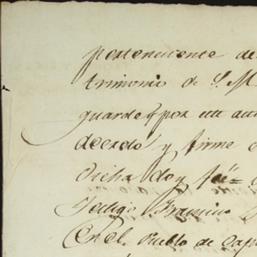 perteneciente de
trimonio de S. M
guarde y por un au
decreto y firme
dicha doy fee=
Testigo Francisco
En el Pueblo de Cap